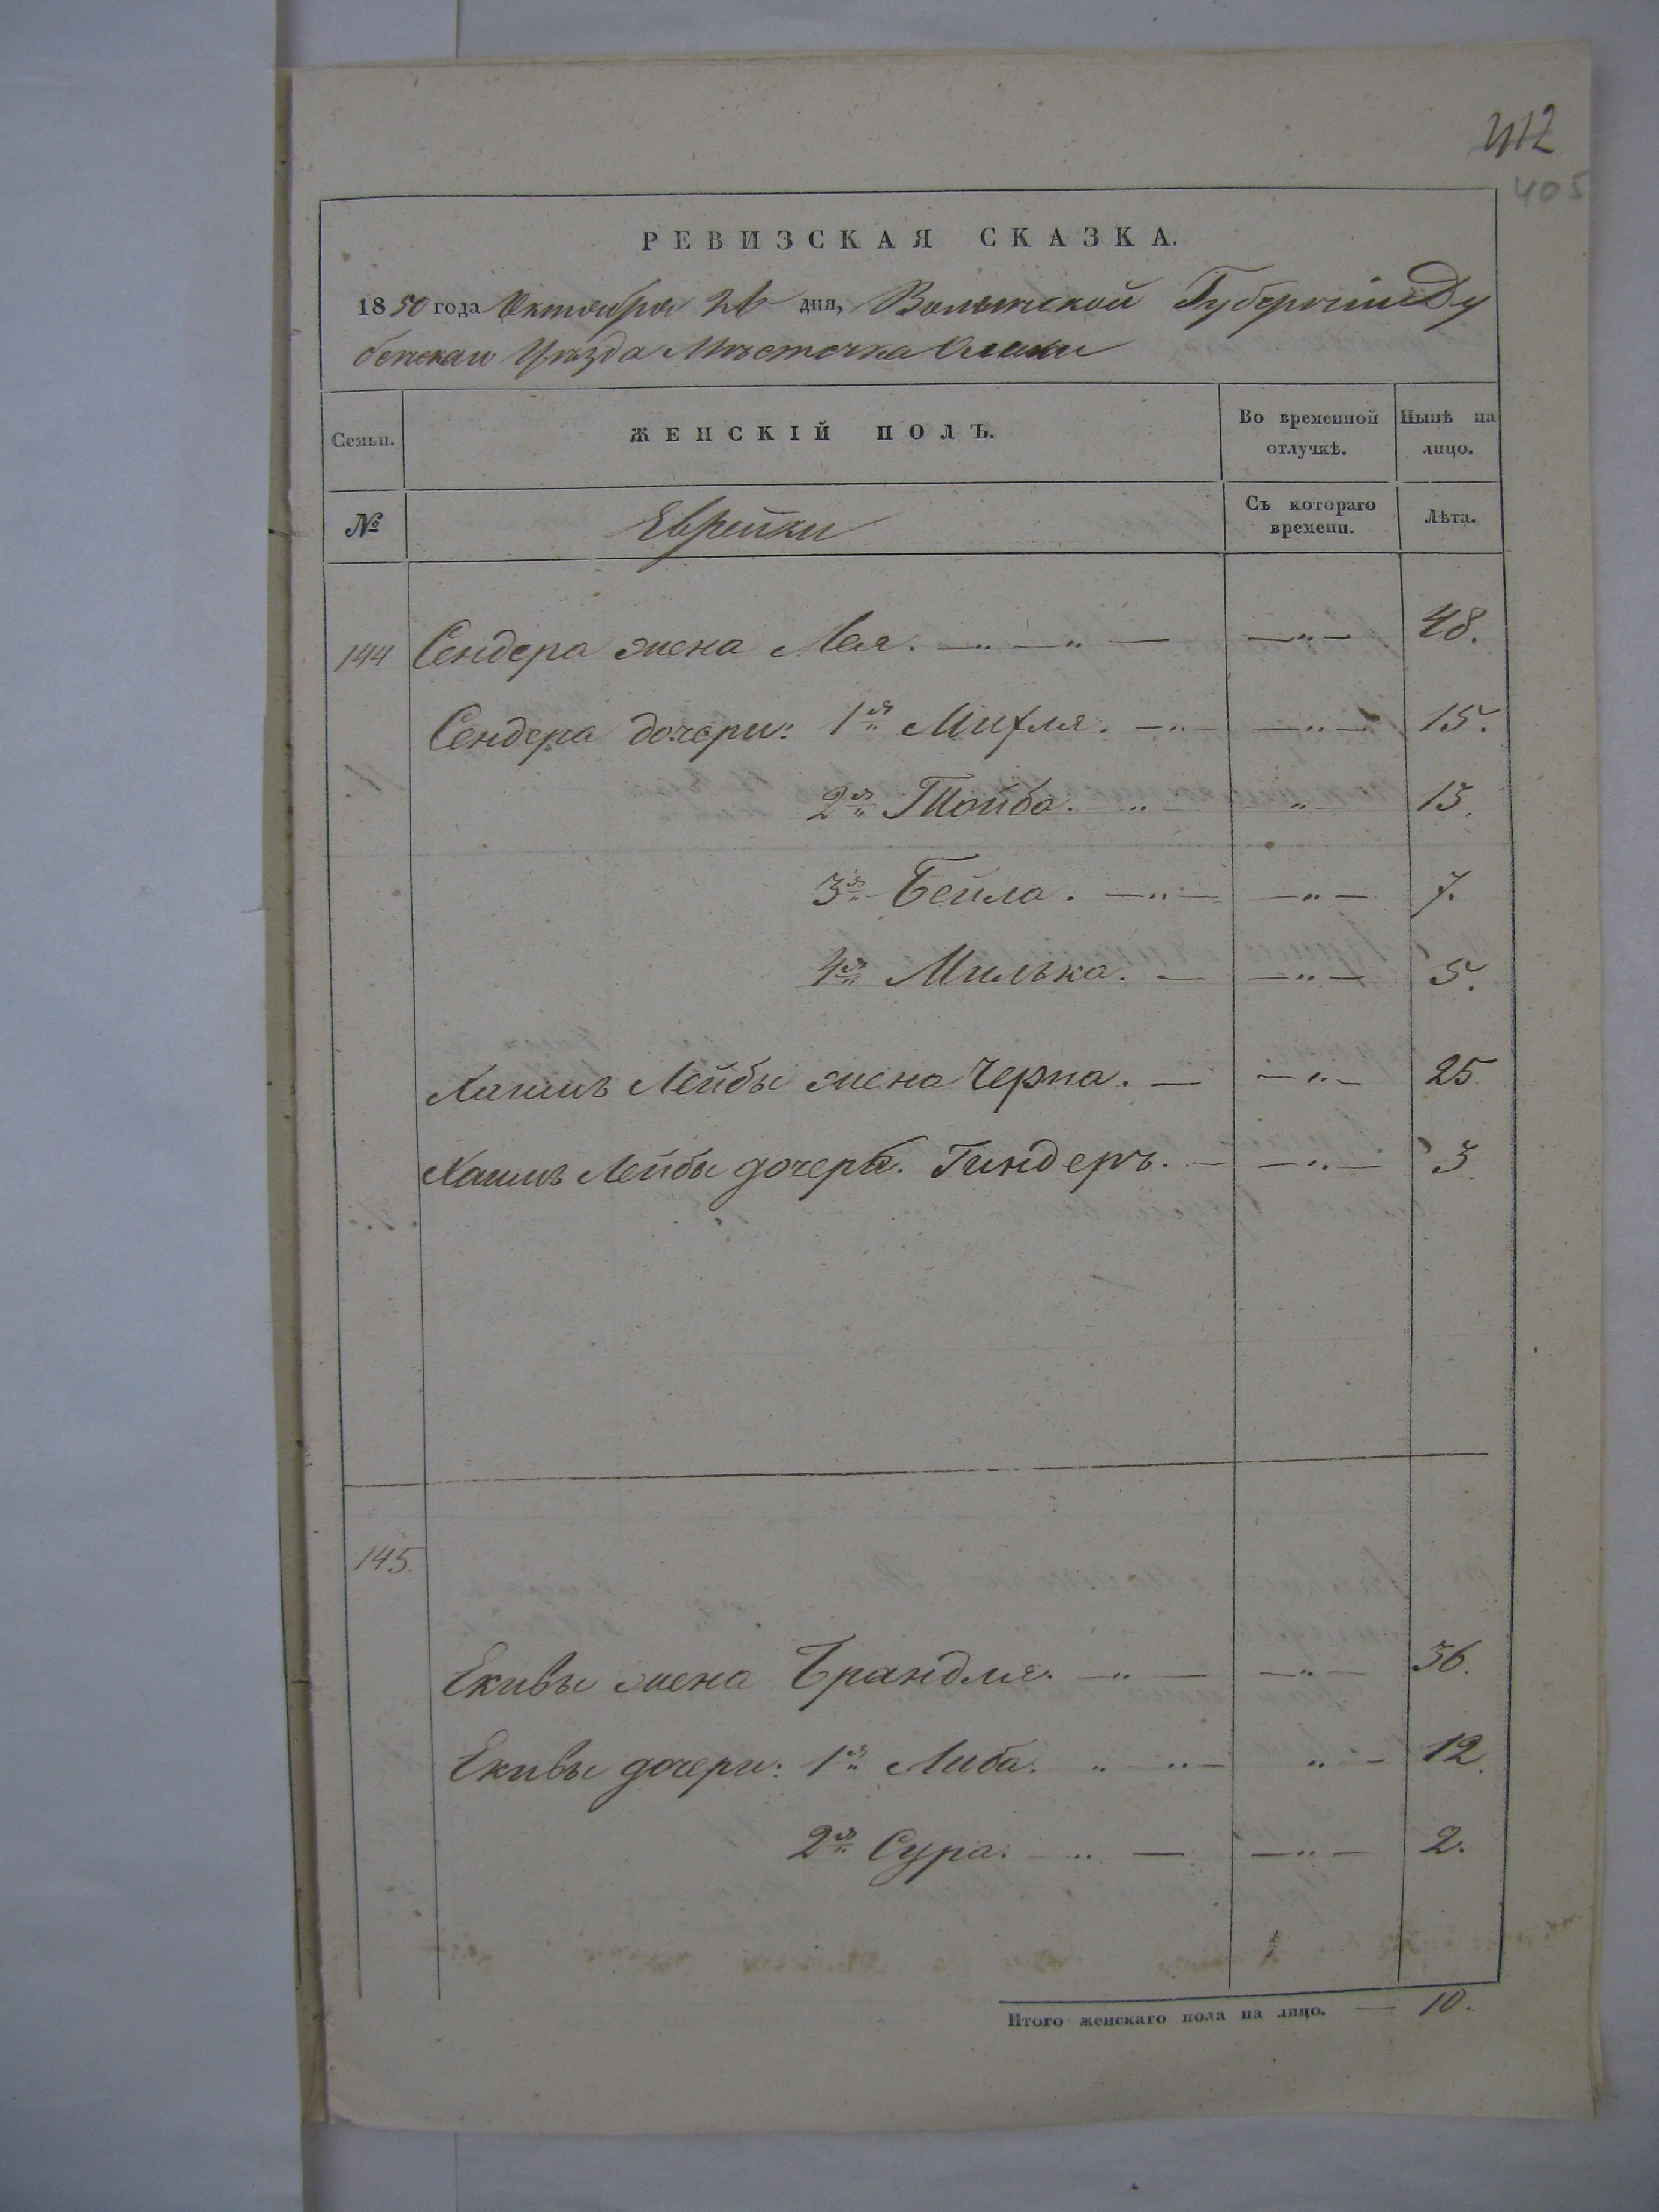 412
405
РЕВИЗСКАЯ СКАЗКА.
1850 года Октября 26 дня, Волынской Губерніи Ду
бенскаго Уезда Мѣстечка Олыки
Семьи. ЖЕНСКІЙ ПОЛЪ. Во временной отлучкѣ. Нынѣ на лицо.
№ Еврейки Съ котораго времени. Лѣта.
144 Сендера жена Лея. — „ — „ — — „ — 48.
Сендера дочери: 1я Михля. — „ — — „ — 15.
2я Тайба. „ — „ — 13.
3я Бейла. — „ — — „ — 7.
4я Милька. — — „ — 5.
Хаимъ Лейбы жена Черна. — — „ — 25.
Хаимъ Лейбы дочерь. Гиндеръ. — — „ — 3.
145.
Екивы жена Брандля. — „ — — „ — 36.
Екивы дочери: 1я Либа. „ „ — „ — 12.
2я Сура. — „ — — „ — 2.
Итого женскаго пола на лицо. — 10.